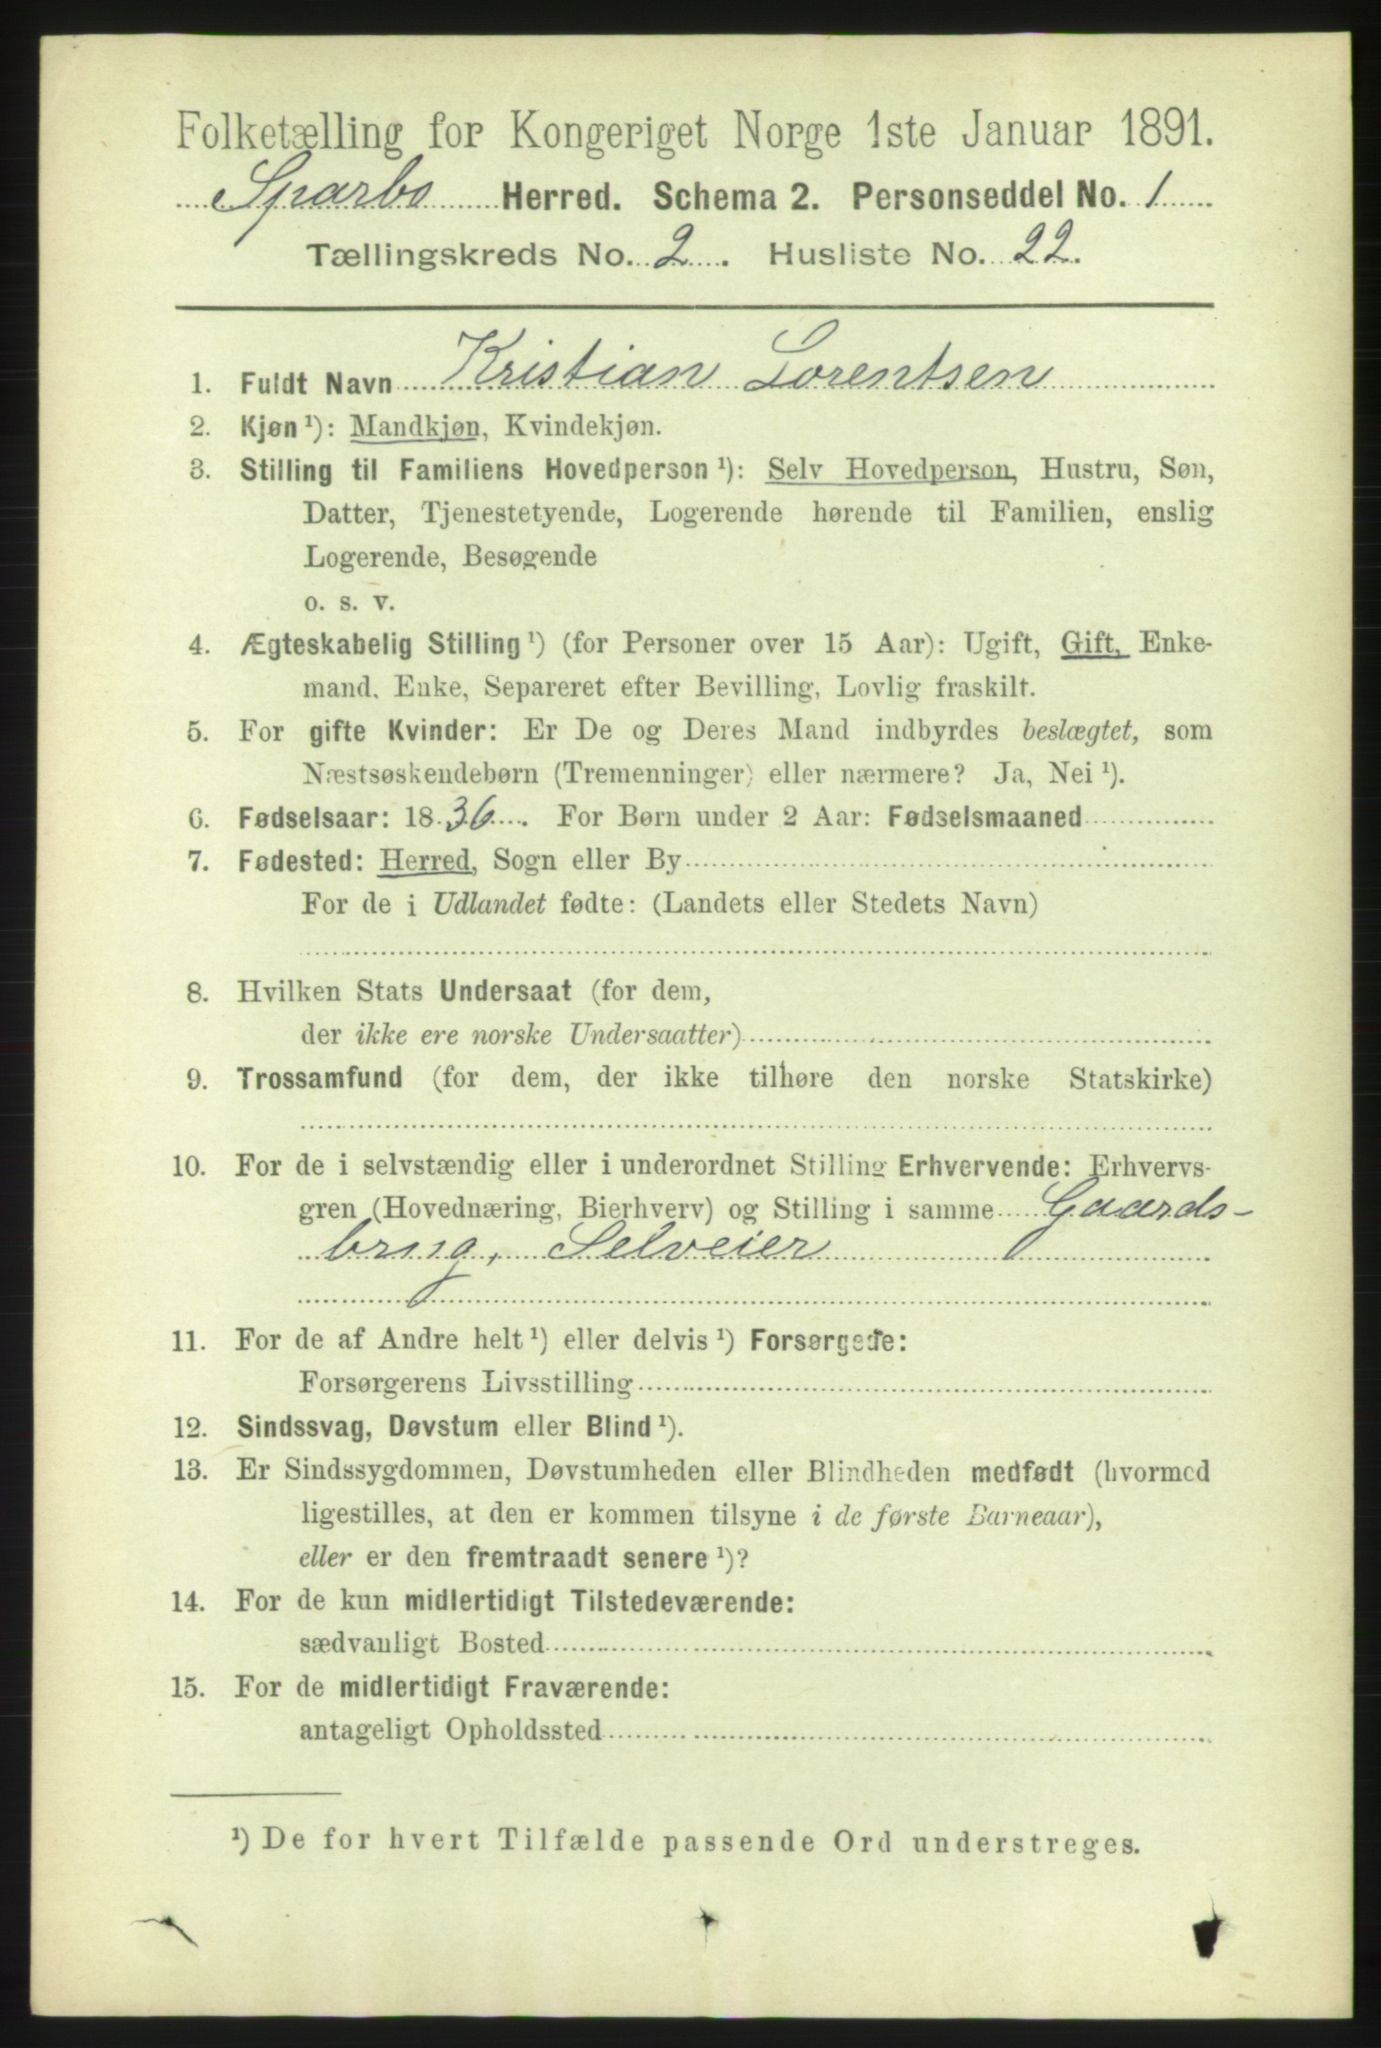 Folketælling for Kongeriget Norge 1ste Januar 1891.
Sparbo Herred. Schema 2. Personseddel No. 1
Tællingskreds No. 2. Husliste No. 22.
1. Fuldt Navn Kristian Lorentsen
2. Kjøn ¹): Mandkjøn, Kvindekjøn.
3. Stilling til Familiens Hovedperson ¹): Selv Hovedperson, Hustru, Søn,
Datter, Tjenestetyende, Logerende hørende til Familien, enslig
Logerende, Besøgende
o. s. v.
4. Ægteskabelig Stilling ¹) (for Personer over 15 Aar): Ugift, Gift, Enke-
mand, Enke, Separeret efter Bevilling, Lovlig fraskilt.
5. For gifte Kvinder: Er De og Deres Mand indbyrdes beslægtet, som
Næstsøskendebørn (Tremenninger) eller nærmere? Ja, Nei ¹).
6. Fødselsaar: 1836. For Børn under 2 Aar: Fødselsmaaned
7. Fødested: Herred, Sogn eller By
For de i Udlandet fødte: (Landets eller Stedets Navn)
8. Hvilken Stats Undersaat (for dem,
der ikke ere norske Undersaatter)
9. Trossamfund (for dem, der ikke tilhøre den norske Statskirke)
10. For de i selvstændig eller i underordnet Stilling Erhvervende: Erhvervs-
gren (Hovednæring, Bierhverv) og Stilling i samme Gaards-
brug, Selveier
11. For de af Andre helt ¹) eller delvis ¹) Forsørgede:
Forsørgerens Livsstilling
12. Sindssvag, Døvstum eller Blind ¹).
13. Er Sindssygdommen, Døvstumheden eller Blindheden medfødt (hvormed
ligestilles, at den er kommen tilsyne i de første Barneaar),
eller er den fremtraadt senere ¹)?
14. For de kun midlertidigt Tilstedeværende:
sædvanligt Bosted
15. For de midlertidigt Fraværende:
antageligt Opholdssted
¹) De for hvert Tilfælde passende Ord understreges.